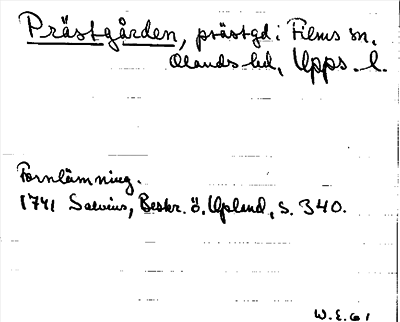 Prästgården, prästgd i Films sn,
Olands hd, Upps. l.
Fornlämning.
1741 Salvius, Beskr. ö. Upland, s. 340.
W.E. 61